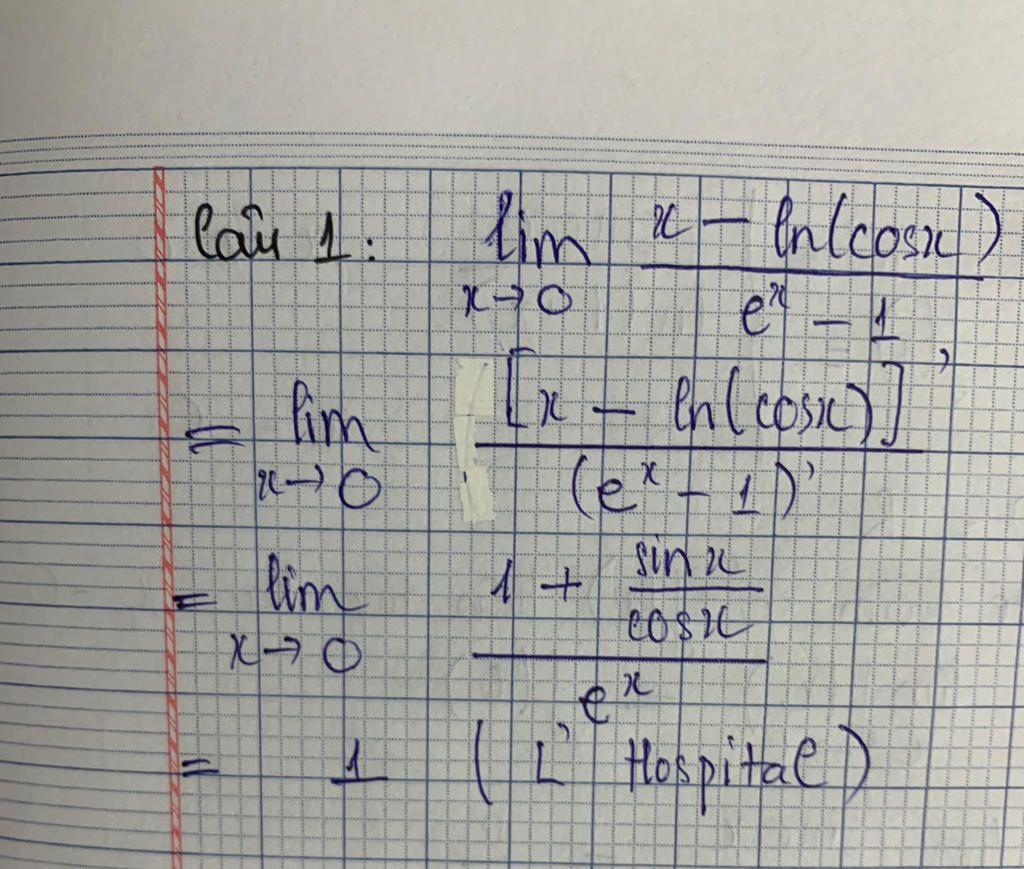 Câu 1: lim x→0 (x - ln(cosx)) / (e^x - 1)
= lim x→0 [x - ln(cosx)]' / (e^x - 1)'
= lim x→0 (1 + sinx/cosx) / e^x
= 1 (L'Hospital)